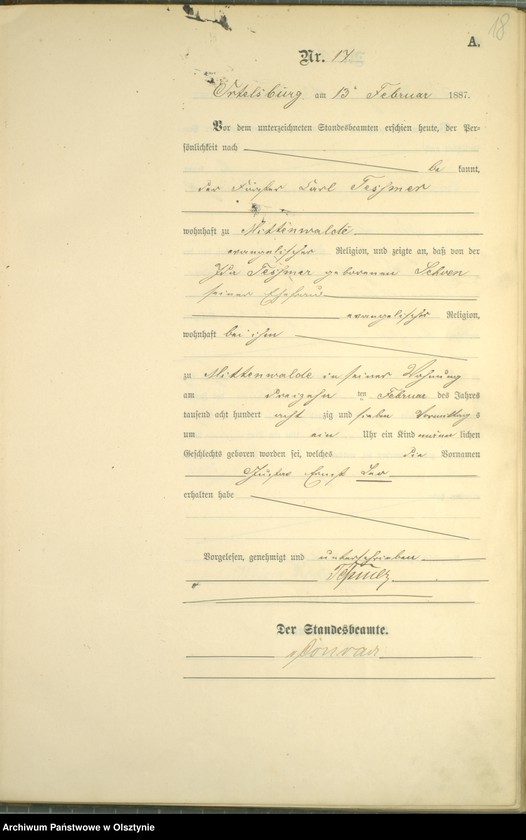 18
A.
Nr. 17
Ortelsburg am 13 Februar 1887.
Vor dem unterzeichneten Standesbeamten erschien heute, der Per-
sönlichkeit nach
be kannt,
der Carl Teßmer
wohnhaft zu Mittenwalde
evangelischer Religion, und zeigte an, daß von der
Ida Teßmer geborenen
seiner Ehefrau
evangelischer Religion,
wohnhaft bei ihm
zu Mittenwalde in seiner Wohnung
am dreizehn ten Februar des Jahres
tausend acht hundert acht zig und sieben Vormittag s
um ein Uhr ein Kind männ lichen
Geschlechts geboren worden sei, welches die Vornamen
Ernst Leo
erhalten habe
Vorgelesen, genehmigt und unterschrieben
Teßmer
Der Standesbeamte.
Konrad
Archiwum Państwowe w Olsztynie